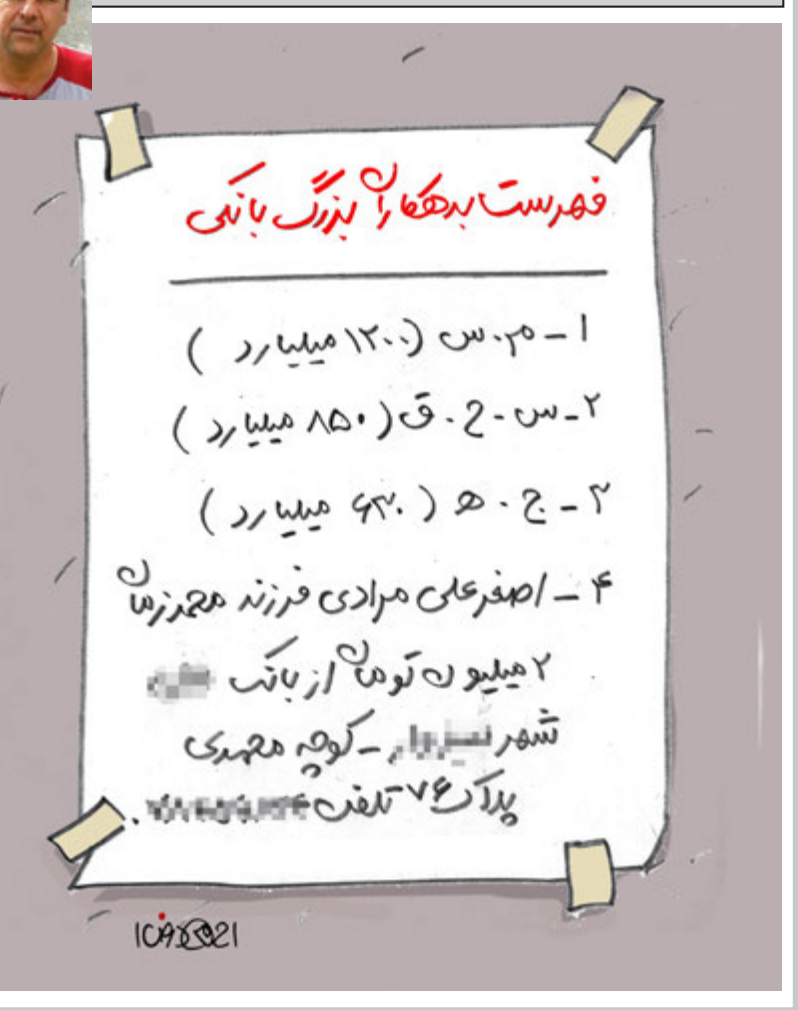 فهرست بدهکاران بزرگ بانکی
۱ - م.س (۱۲۰۰ میلیارد )
۲ - س - ح . ق (۸۵۰ میلیارد )
۳ - ج . ه (۶۳۰ میلیارد )
۴ - اصغرعلی مرادی فرزند محمدزمان
۲ میلیون تومان از بانک
شهر - کوچه مهدی
پلاک ۷۶ تلفن